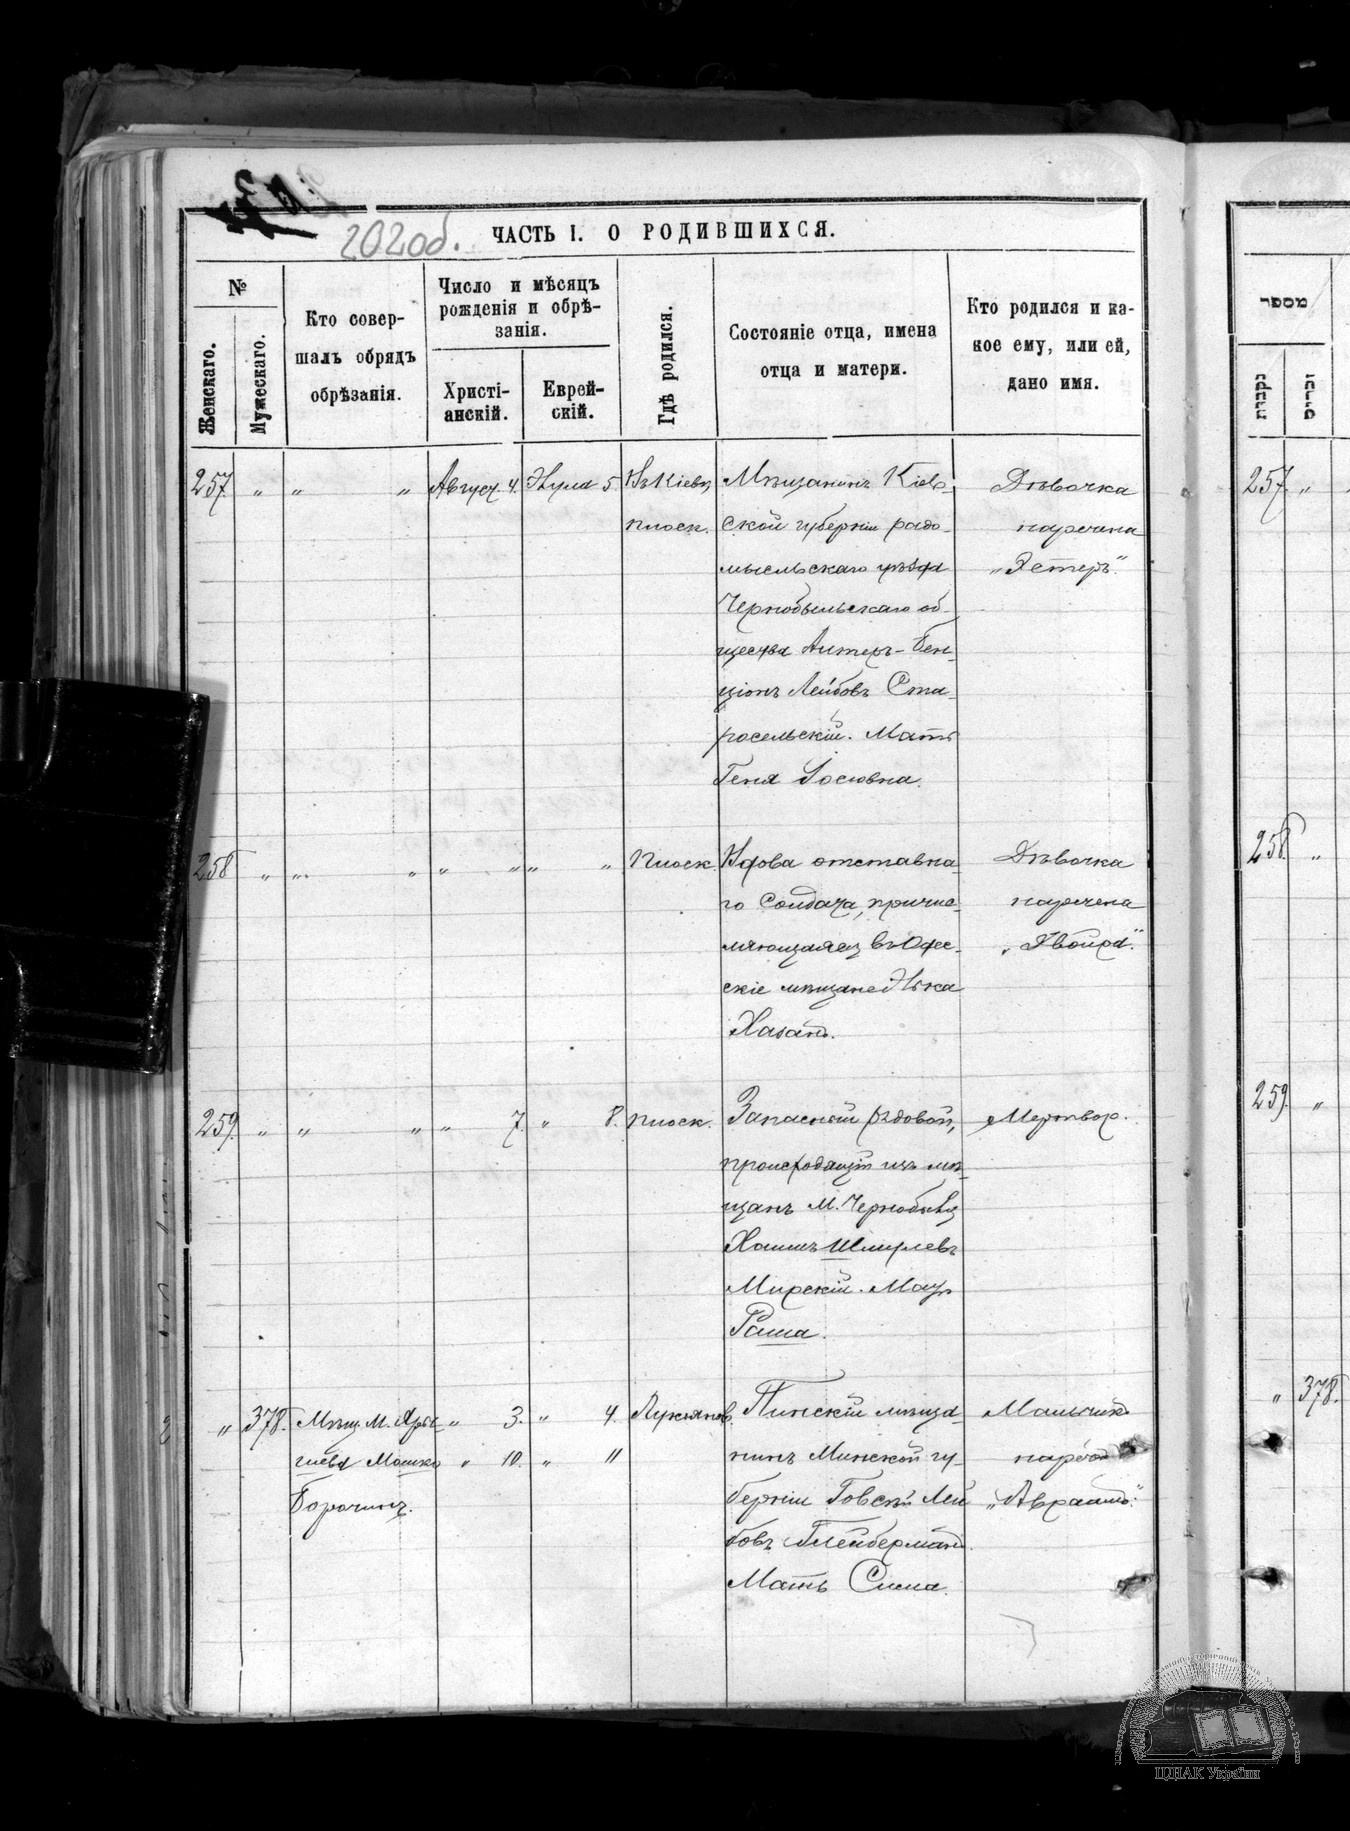 202об.
ЧАСТЬ I. О РОДИВШИХСЯ.
№
Женскаго.
Мужескаго.
Кто совер-
шалъ обрядъ
обрѣзанія.
Число и мѣсяцъ
рожденія и обрѣ-
занія.
Христі-
анскій.
Еврей-
скій.
Гдѣ родился.
Состояніе отца, имена
отца и матери.
Кто родился и ка-
кое ему, или ей,
дано имя.
257 „ „ „ Август 4. 5 Въ Кіевѣ,
плоск.
Мѣщанинъ Кіев-
ской губерніи радо-
мысльскаго уѣзда
Чернобыльскаго об-
щества Алтеръ-Бен-
ціонъ Лейбовъ Ста-
росельскій. Мать
Геня Іосіовна.
Дѣвочка
наречена
„Эстеръ“.
258 „ „ „ „ „ „ „ Плоск.
Вдова отставна-
го солдата, причис-
ляющаяся въ Одес-
скіе мѣщане
Хазанъ.
Дѣвочка
наречена
„Двойра“.
259. „ „ „ „ 7. „ 8. плоск.
Запасной рядовой,
происходящій изъ мѣ-
щанъ М. Чернобыля
Хаимъ Шмулевъ
Мирскій. Мать
Раша.
Мертвор.
„ 378. Мѣщ. М.
Мошко
„ 3. „ 4. Лукьянов.
„ 10. „ 11
Пинскій мѣща-
нинъ Минской гу-
берніи Лей
бовъ Глейберманъ.
Мать Сима.
Мальчикъ
нареченъ
„Авраамъ“.
מספר
נקבות
זכרים
257. „
258. „
259. „
„ 378.
ЦДІАК України